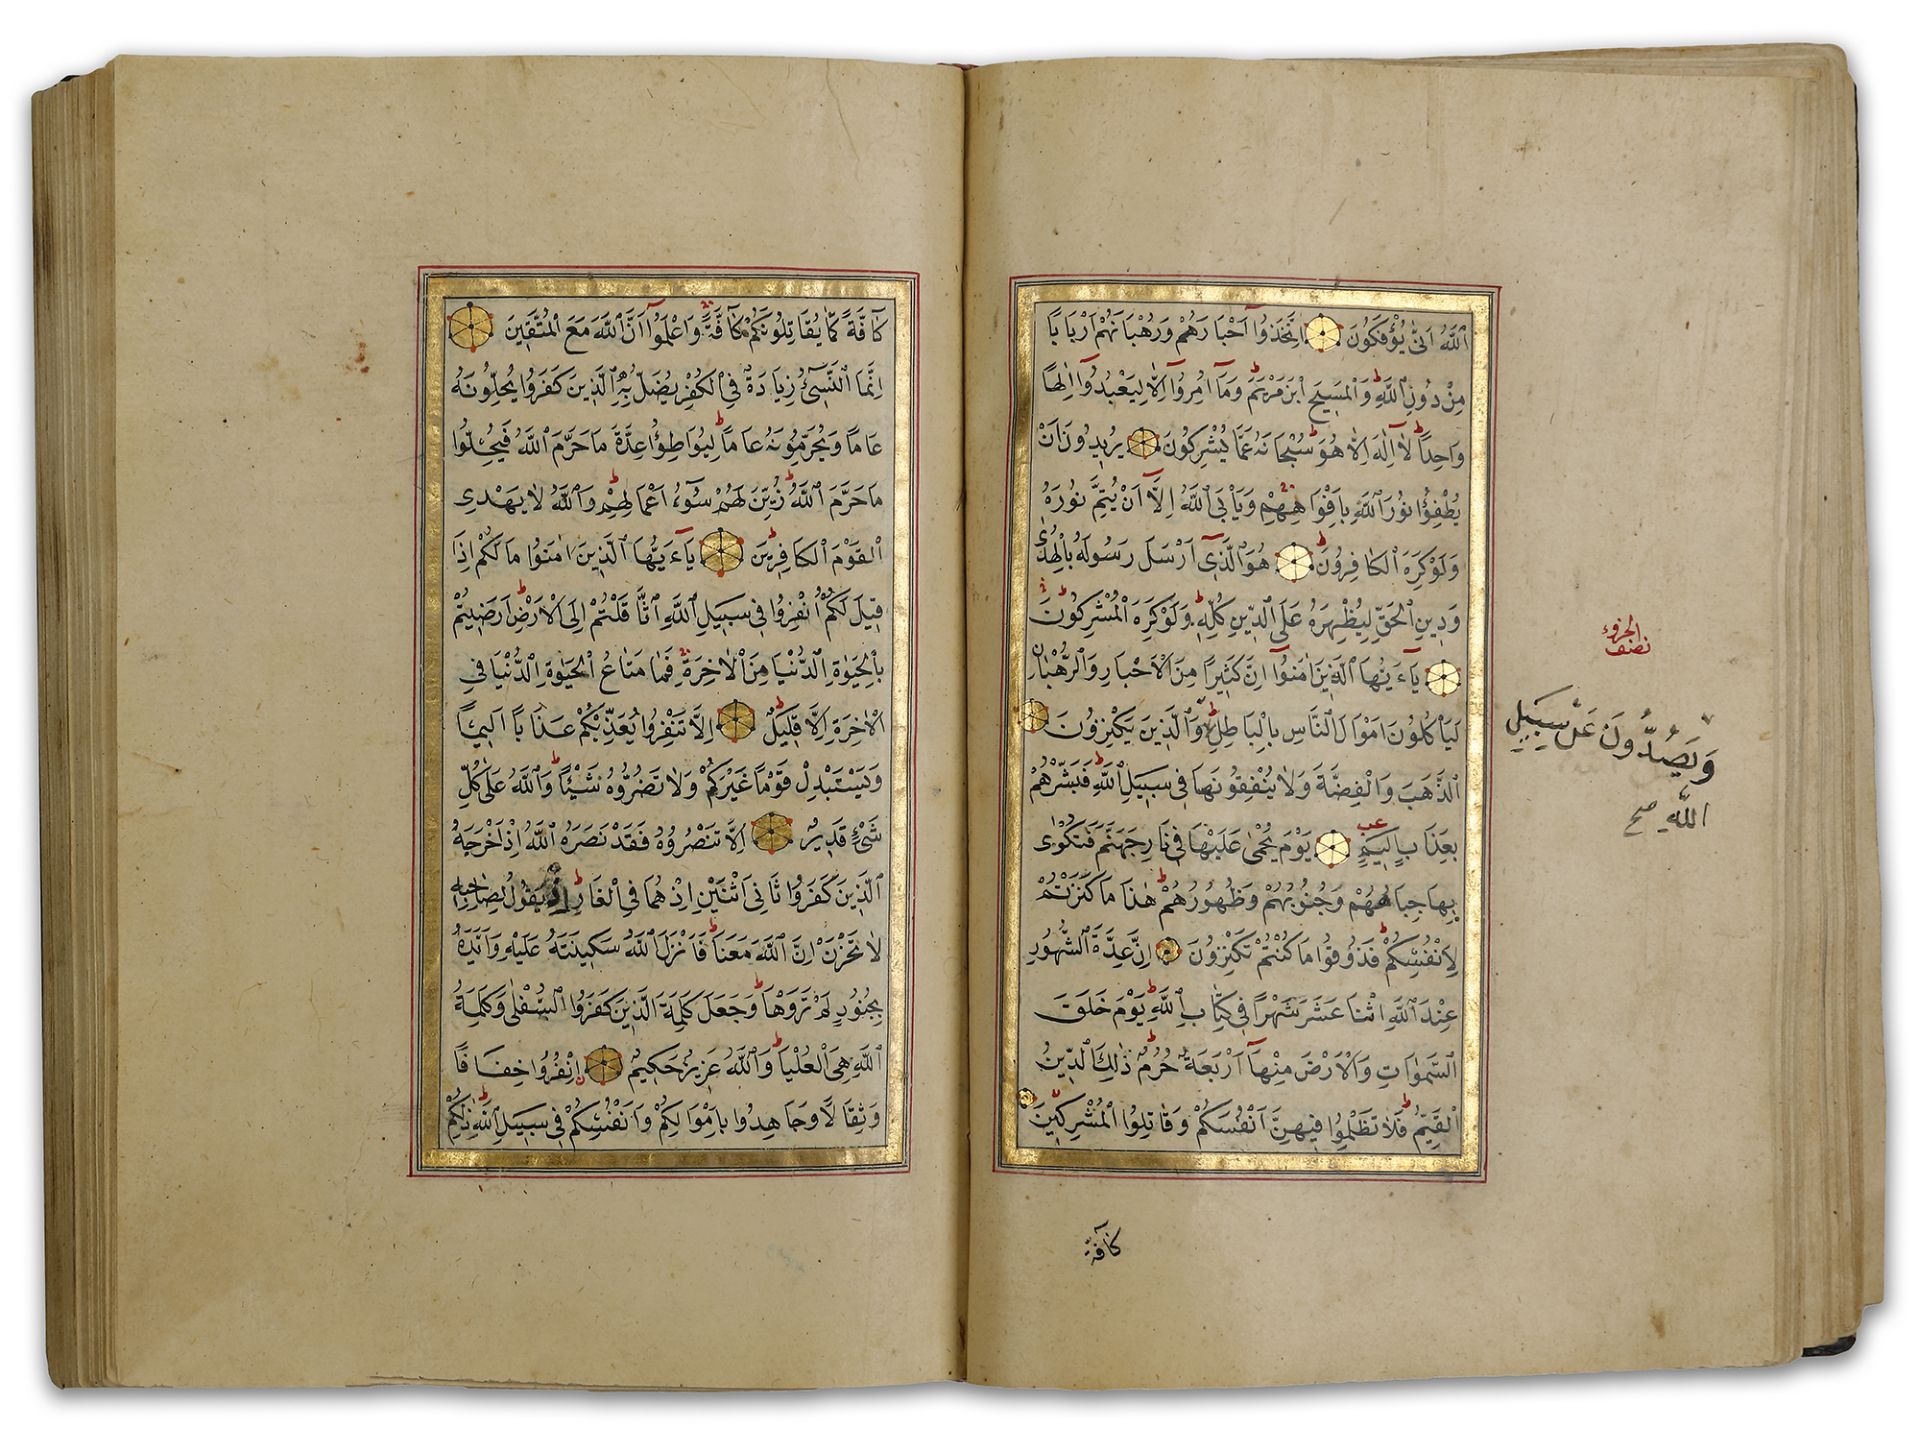 اَللّٰهُ اَنّٰى يُؤْفَكُونَ اِتَّخَذُٓوا اَحْبَارَهُمْ وَرُهْبَانَهُمْ اَرْبَابًا
مِنْ دُونِ اللّٰهِ وَالْمَسِيحَ ابْنَ مَرْيَمَ وَمَٓا اُمِرُٓوا اِلَّا لِيَعْبُدُٓوا اِلٰهًا
وَاحِدًا لَٓا اِلٰهَ اِلَّا هُوَ سُبْحَانَهُ عَمَّا يُشْرِكُونَ يُرِيدُونَ اَنْ
يُطْفِؤُا نُورَ اللّٰهِ بِاَفْوَاهِهِمْ وَيَاْبَى اللّٰهُ اِلَّٓا اَنْ يُتِمَّ نُورَهُ
وَلَوْ كَرِهَ الْكَافِرُونَ هُوَ الَّذِٓى اَرْسَلَ رَسُولَهُ بِالْهُدٰى
وَدِينِ الْحَقِّ لِيُظْهِرَهُ عَلَى الدِّينِ كُلِّهِ وَلَوْ كَرِهَ الْمُشْرِكُونَ
يَٓاءَيُّهَا الَّذِينَ اٰمَنُٓوا اِنَّ كَثِيرًا مِنَ الْاَحْبَارِ وَالرُّهْبَانِ
لَيَاْكُلُونَ اَمْوَالَ النَّاسِ بِالْبَاطِلِ وَالَّذِينَ يَكْنِزُونَ
الذَّهَبَ وَالْفِضَّةَ وَلَا يُنْفِقُونَهَا فِى سَبِيلِ اللّٰهِ فَبَشِّرْهُمْ
بِعَذَابٍ اَلِيمٍ يَوْمَ يُحْمٰى عَلَيْهَا فِى نَارِ جَهَنَّمَ فَتُكْوٰى
بِهَا جِبَاهُهُمْ وَجُنُوبُهُمْ وَظُهُورُهُمْ هٰذَا مَا كَنَزْتُمْ
لِاَنْفُسِكُمْ فَذُوقُوا مَا كُنْتُمْ تَكْنِزُونَ اِنَّ عِدَّةَ الشُّهُورِ
عِنْدَ اللّٰهِ اثْنَا عَشَرَ شَهْرًا فِى كِتَابِ اللّٰهِ يَوْمَ خَلَقَ
السَّمٰوَاتِ وَالْاَرْضَ مِنْهَٓا اَرْبَعَةٌ حُرُمٌ ذٰلِكَ الدِّينُ
الْقَيِّمُ فَلَا تَظْلِمُوا فِيهِنَّ اَنْفُسَكُمْ وَقَاتِلُوا الْمُشْرِكِينَ
نصف الجزء
وَيَصُدُّونَ عَنْ سَبِيلِ
اللّٰهِ صح
كَٓافَّةً
كَٓافَّةً كَمَا يُقَاتِلُونَكُمْ كَٓافَّةً وَاعْلَمُٓوا اَنَّ اللّٰهَ مَعَ الْمُتَّقِينَ
اِنَّمَا النَّسِٓىءُ زِيَادَةٌ فِى الْكُفْرِ يُضَلُّ بِهِ الَّذِينَ كَفَرُوا يُحِلُّونَهُ
عَامًا وَيُحَرِّمُونَهُ عَامًا لِيُوَاطِؤُا عِدَّةَ مَا حَرَّمَ اللّٰهُ فَيُحِلُّوا
مَا حَرَّمَ اللّٰهُ زُيِّنَ لَهُمْ سُٓوءُ اَعْمَالِهِمْ وَاللّٰهُ لَا يَهْدِى
الْقَوْمَ الْكَافِرِينَ يَٓاءَيُّهَا الَّذِينَ اٰمَنُوا مَا لَكُمْ اِذَا
قِيلَ لَكُمُ انْفِرُوا فِى سَبِيلِ اللّٰهِ اثَّاقَلْتُمْ اِلَى الْاَرْضِ اَرَضِيتُمْ
بِالْحَيٰوةِ الدُّنْيَا مِنَ الْاٰخِرَةِ فَمَا مَتَاعُ الْحَيٰوةِ الدُّنْيَا فِى
الْاٰخِرَةِ اِلَّا قَلِيلٌ اِلَّا تَنْفِرُوا يُعَذِّبْكُمْ عَذَابًا اَلِيمًا
وَيَسْتَبْدِلْ قَوْمًا غَيْرَكُمْ وَلَا تَضُرُّوهُ شَيْئًا وَاللّٰهُ عَلٰى كُلِّ
شَىْءٍ قَدِيرٌ اِلَّا تَنْصُرُوهُ فَقَدْ نَصَرَهُ اللّٰهُ اِذْ اَخْرَجَهُ
الَّذِينَ كَفَرُوا ثَانِىَ اثْنَيْنِ اِذْ هُمَا فِى الْغَارِ اِذْ يَقُولُ لِصَاحِبِهِ
لَا تَحْزَنْ اِنَّ اللّٰهَ مَعَنَا فَاَنْزَلَ اللّٰهُ سَكِينَتَهُ عَلَيْهِ وَاَيَّدَهُ
بِجُنُودٍ لَمْ تَرَوْهَا وَجَعَلَ كَلِمَةَ الَّذِينَ كَفَرُوا السُّفْلٰى وَكَلِمَةُ
اللّٰهِ هِىَ الْعُلْيَا وَاللّٰهُ عَزِيزٌ حَكِيمٌ اِنْفِرُوا خِفَافًا
وَثِقَالًا وَجَاهِدُوا بِاَمْوَالِكُمْ وَاَنْفُسِكُمْ فِى سَبِيلِ اللّٰهِ ذٰلِكُمْ